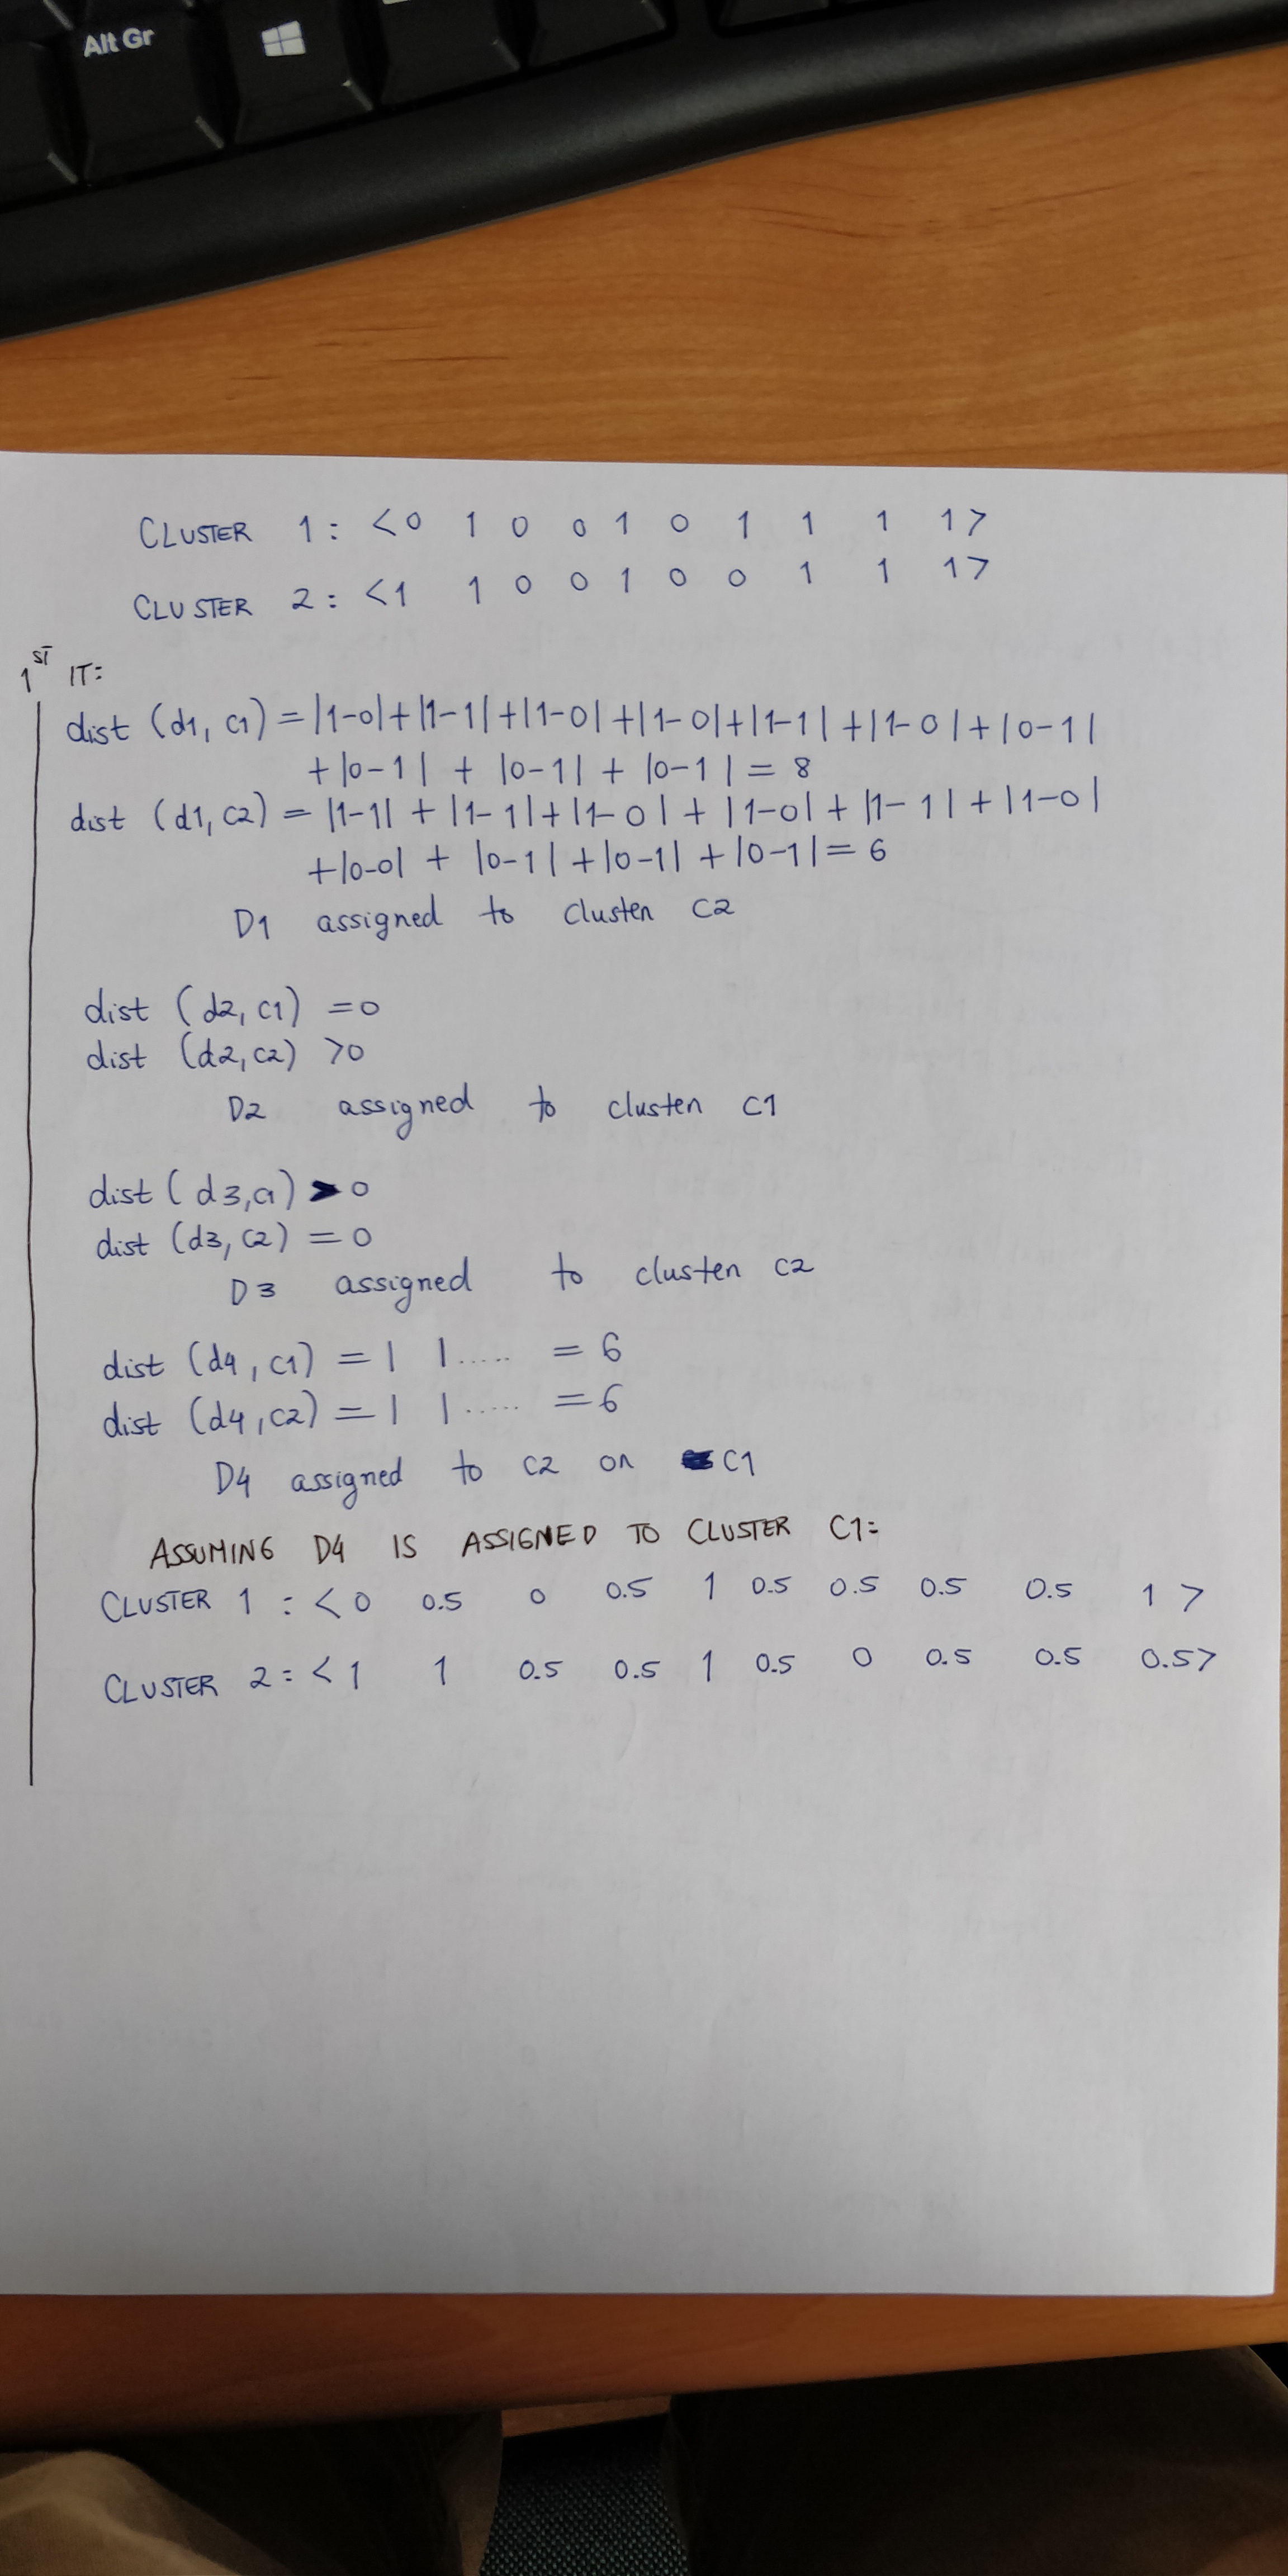 Alt Gr
CLUSTER 1: <0 1 0 0 1 0 1 1 1 1>
CLUSTER 2: <1 1 0 0 1 0 0 1 1 1>
1ST IT:
dist (d1, c1) = |1-0|+|1-1|+|1-0|+|1-0|+|1-1|+|1-0|+|0-1|
+|0-1| + |0-1| + |0-1| = 8
dist (d1, c2) = |1-1| + |1-1|+|1-0| + |1-0| + |1-1| + |1-0|
+|0-0| + |0-1| +|0-1| +|0-1|= 6
D1 assigned to cluster C2
dist (d2, c1) =0
dist (d2, c2) >0
D2 assigned to cluster C1
dist (d3, c1) > 0
dist (d3, c2) = 0
D3 assigned to cluster C2
dist (d4, c1) = | |..... = 6
dist (d4, c2) = | |..... = 6
D4 assigned to C2 or C1
ASSUMING D4 IS ASSIGNED TO CLUSTER C1:
CLUSTER 1 : <0 0.5 0 0.5 1 0.5 0.5 0.5 0.5 1 >
CLUSTER 2: <1 1 0.5 0.5 1 0.5 0 0.5 0.5 0.5>